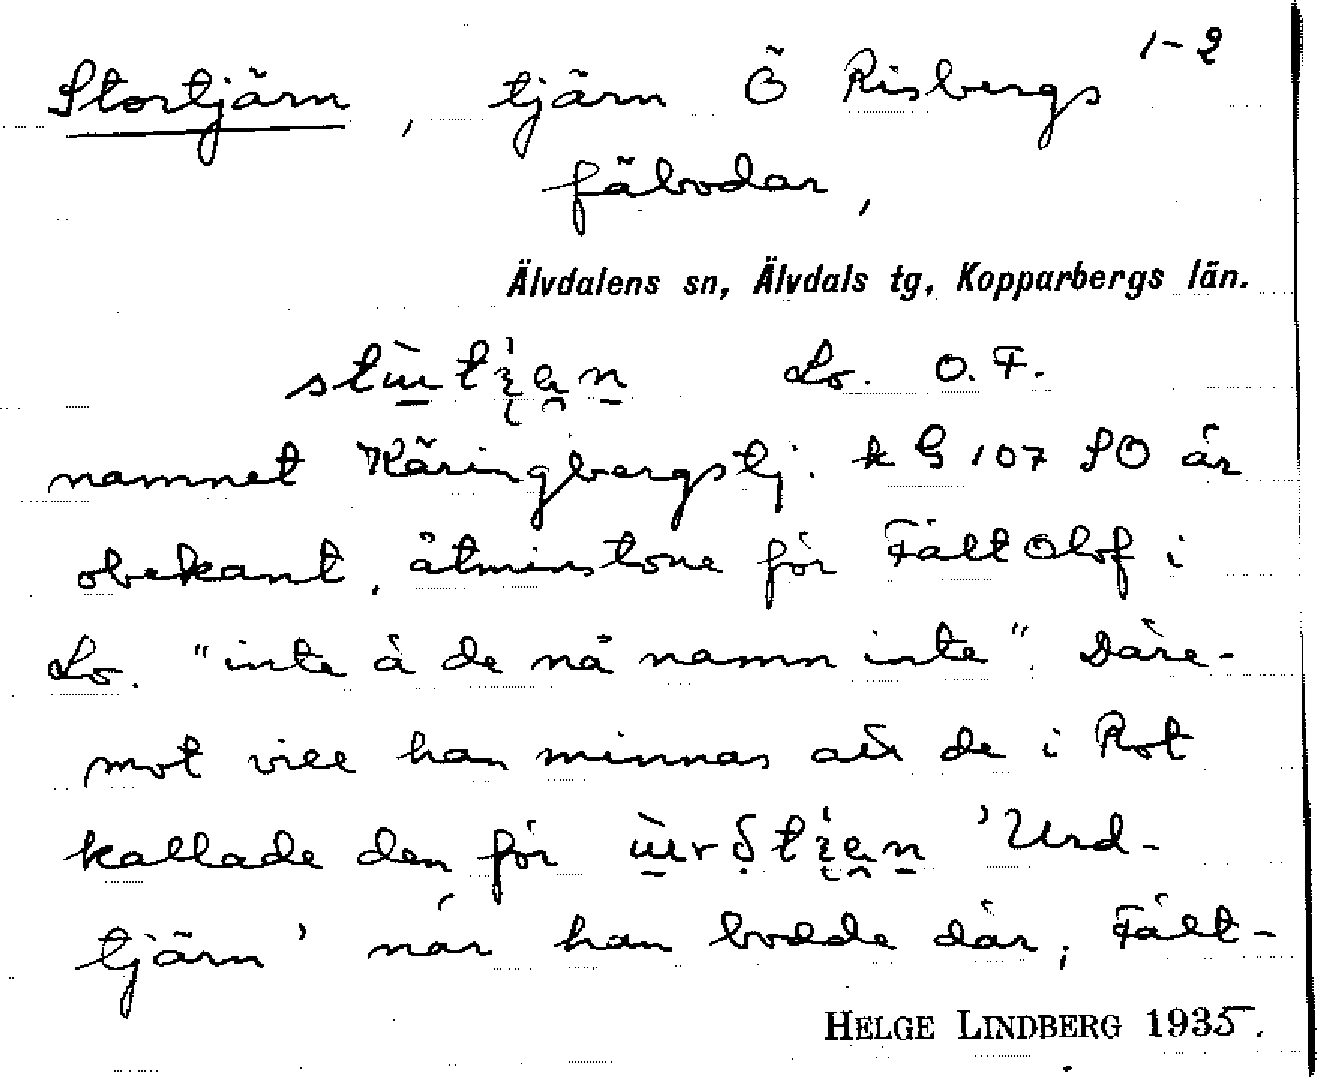 1-2
Stortjärn, tjärn Ö Risbergs
fäbodar,
Älvdalens sn, Älvdals tg, Kopparbergs län.
Lo. O.F.
namnet Käringbergstj. k G 107 SO är
obekant, åtminstone för Fält Olof i
Lo. "inte å de nå namn inte". Däre-
mot vill han minnas att de i Rot
kallade den för 'Urd-
tjärn' när han bodde där, Fält-
HELGE LINDBERG 1935.